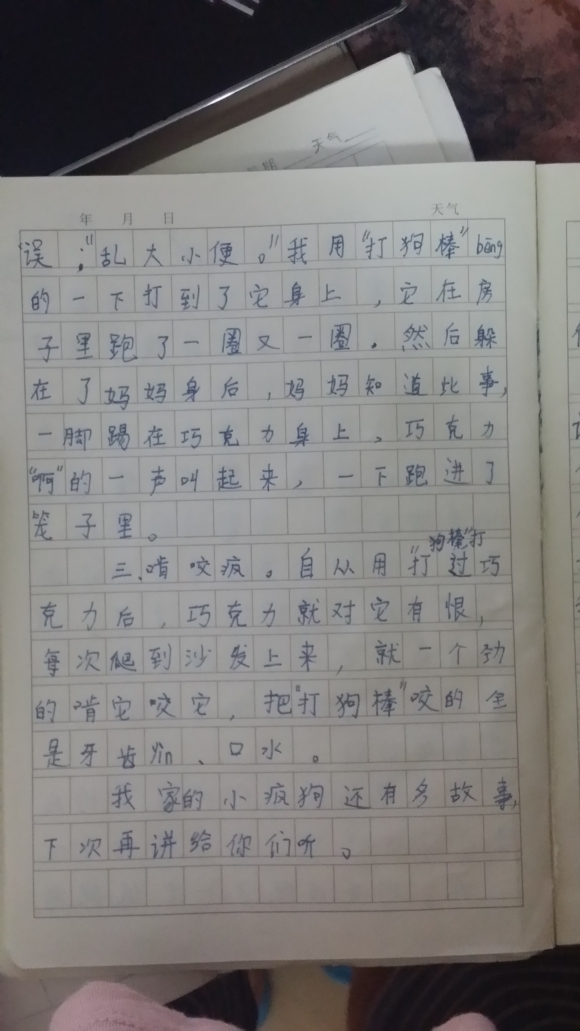 天气
年 月 日 天气
误:"乱大小便。"我用"打狗棒"bāng
的一下打到了它身上,它在房
子里跑了一圈又一圈。然后躲
在了妈妈身后,妈妈知道此事,
一脚踢在巧克力身上,巧克力
"啊"的一声叫起来,一下跑进了
笼子里。
三、啃咬疯。自从用"打狗棒"打过巧
克力后,巧克力就对它有恨,
每次爬到沙发上来,就一个劲
的啃它咬它,把"打狗棒"咬的全
是牙齿yìn、口水。
我家的小疯狗还有多故事,
下次再讲给你们听。